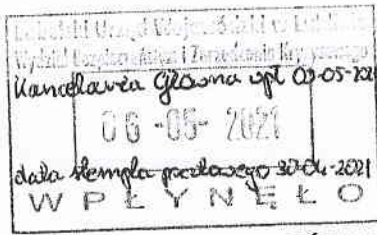 Lubelski Urząd Wojewódzki w Lublinie
Wydział Bezpieczeństwa i Zarządzania Kryzysowego
Kancelaria Główna wpł 05-2021
06 -05- 2021
data stempla pocztowego 30-04-2021
WPŁYNĘŁO